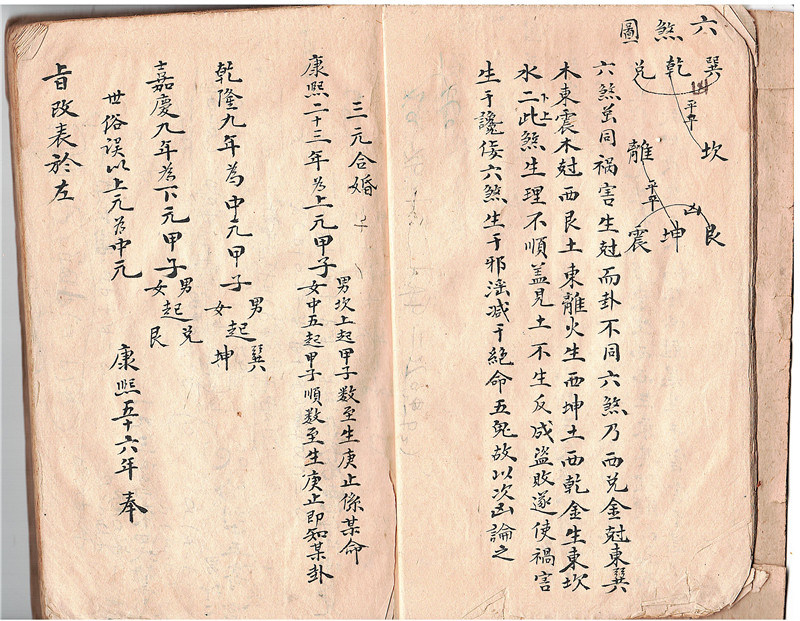 六煞圖
巽 乾 兌
凶
平平
坎 離
平平
凶
艮 坤 震
六煞並同禍害生尅而卦不同六煞乃西兌金尅東巽
木東震木尅西艮土東離火生西坤土西乾金生東坎
水二此煞生理不順盖見土不生反成盜敗遂使禍害
下上
生于讒佞六煞生于邪滛减于絕命五鬼故以次凶論之
三元合婚
康熙二十三年为上元甲子 男坎上起甲子数至生庚止係某命
女中五起甲子順数至生庚止即知某卦
乾隆九年為中元甲子 男起巽
女起坤
嘉慶九年为下元甲子 男起兌
女起艮
世俗误以上元为中元
康熙五十六年奉
旨改表於左